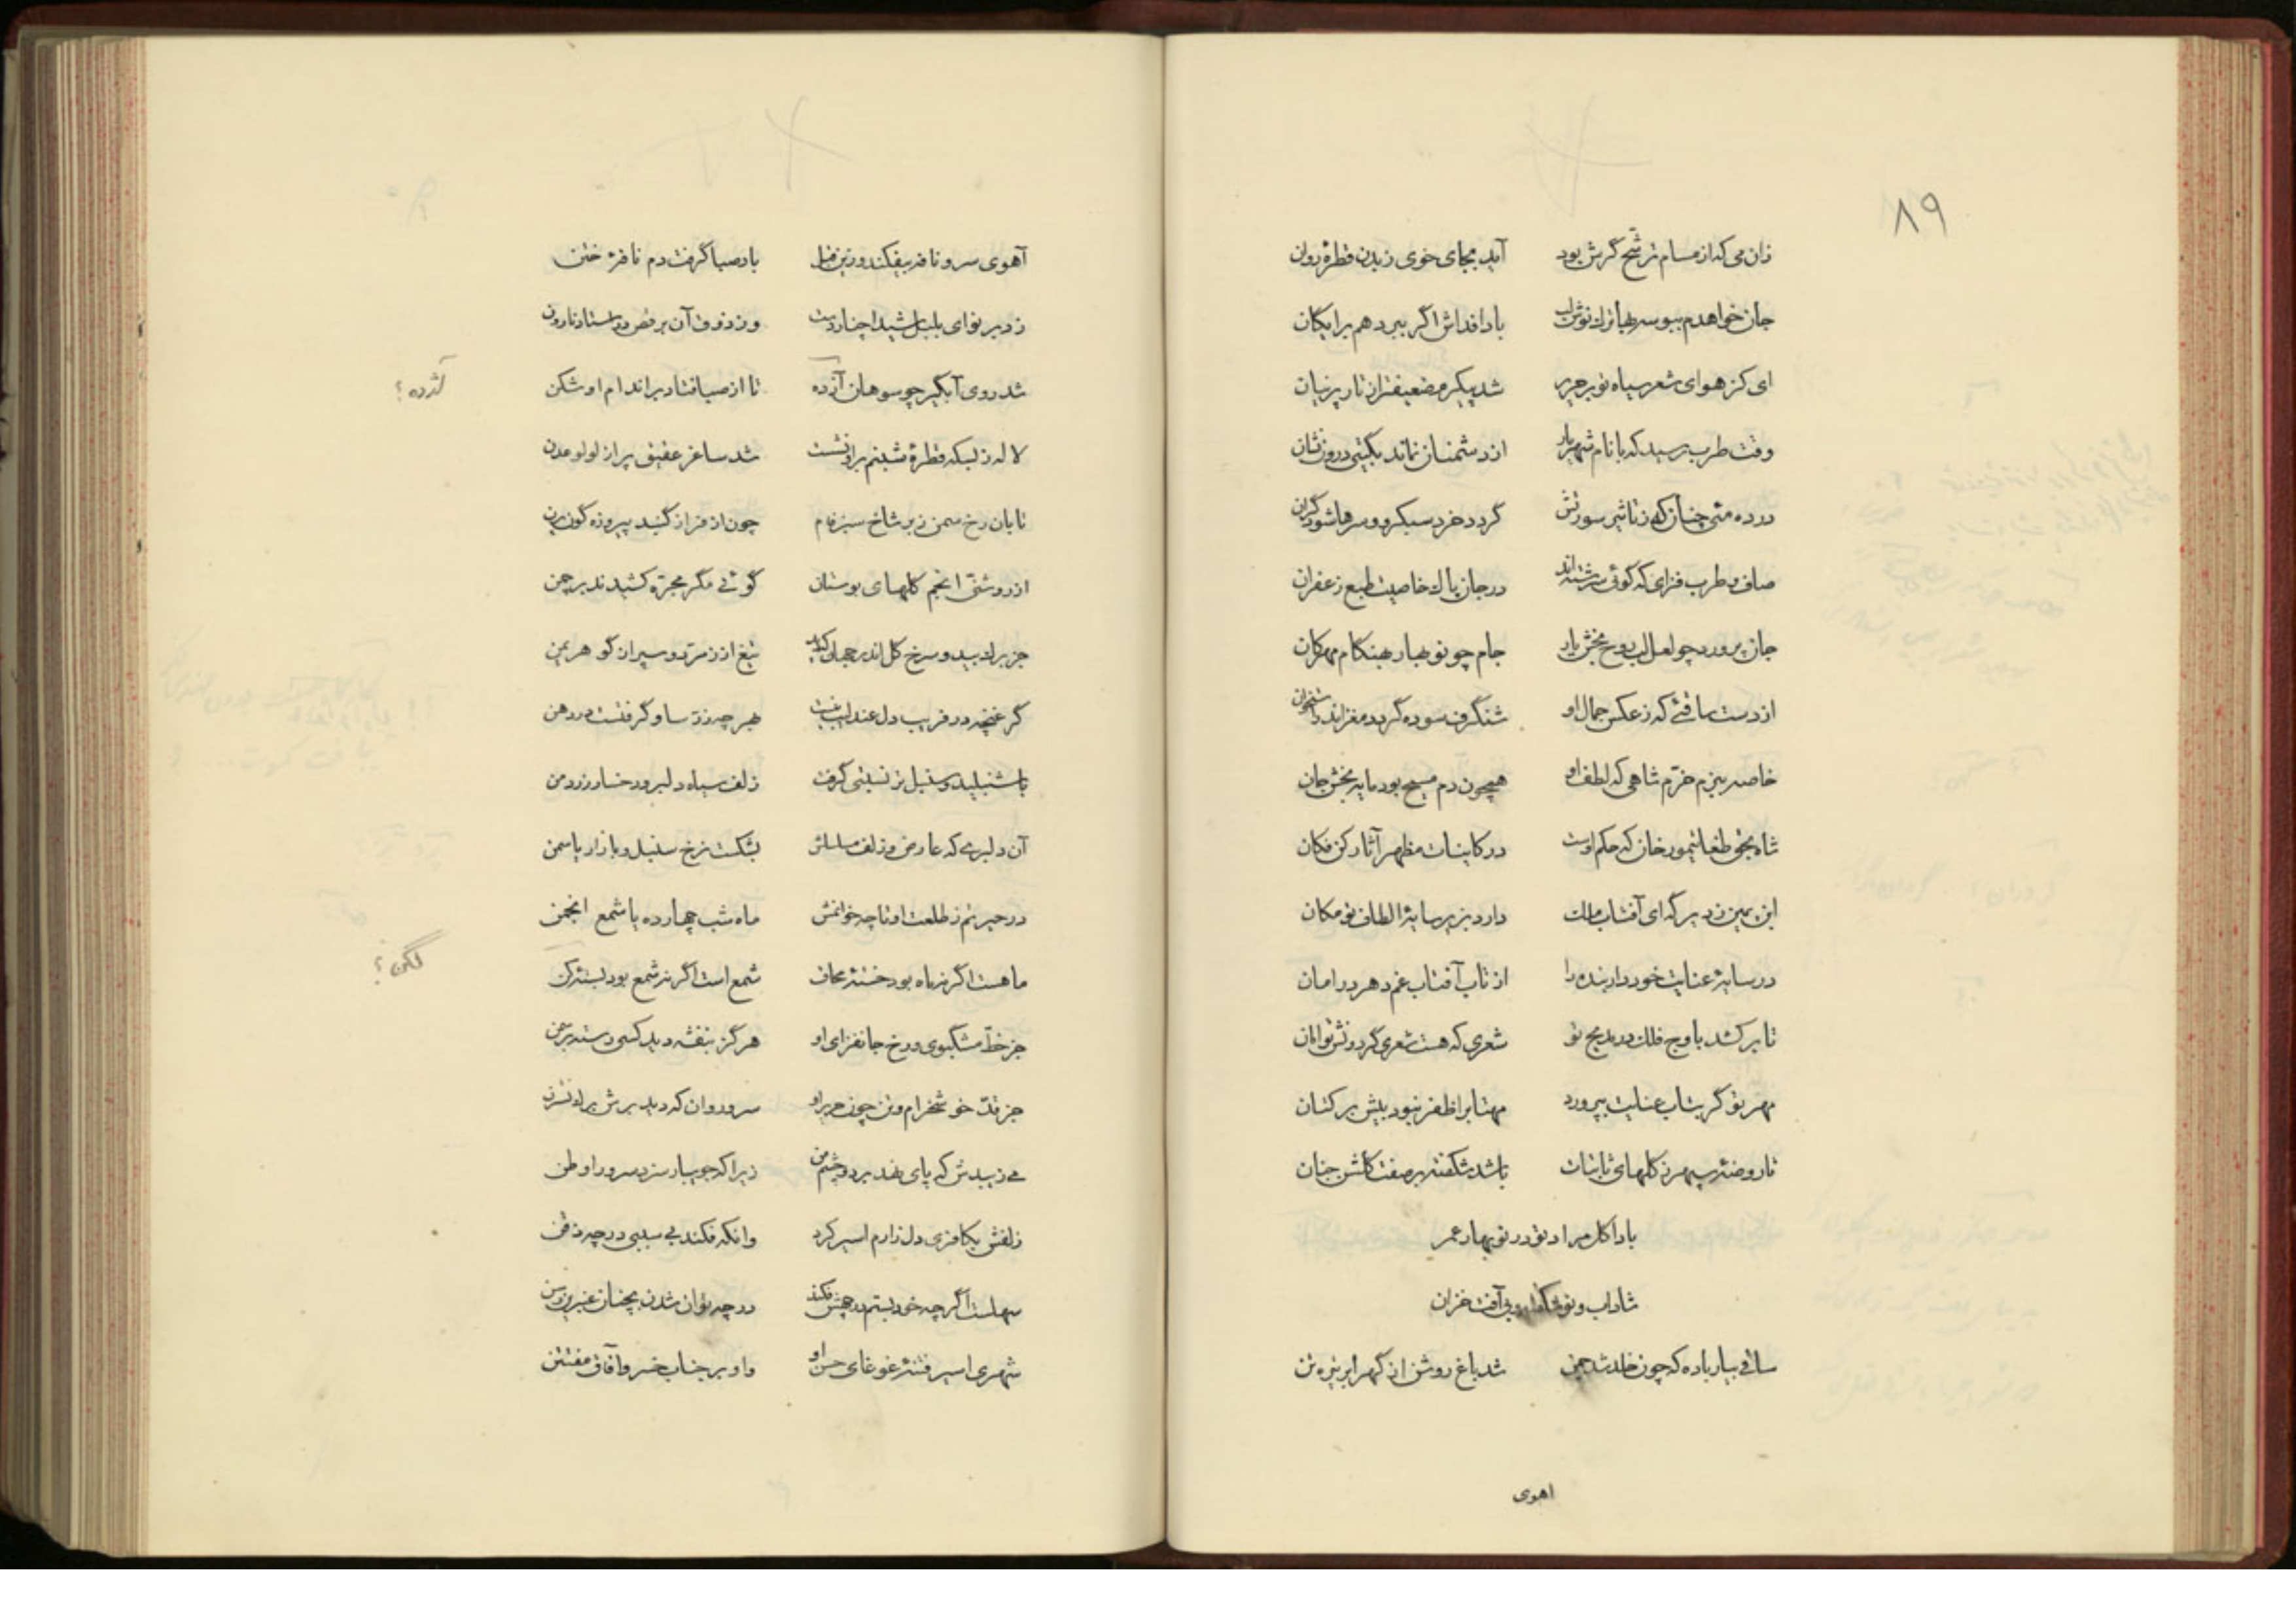 ۸۹
زان می که از مسام ترشح گرش بود آید بجای خوی ز بدن قطره روان
جان خواهدم ببوسه بها ترك نوش لب بادا فداش اگر ببرد هم برایکان
ای کز هوای شعر سیاه تو بر حریر شد پیکرم ضعیفتر از تار پرنیان
وقت طرب رسید که با نام شهریار از دشمنان نماند بگیتی درون نشان
درده مئی چنانکه ز تاثیر سورتش گردد خرد سبکرو و سرها شود گران
صاف و طرب فزای که گوئی سرشته اند در جان پاك خاصیت طبع زعفران
جان پرورد چو لعل لب روح بخش یار جام چو نوبهار بهنگام مهرگان
از دست ساقئی که ز عکس جمال او شنگرف سوده گردد مغز اندر استخوان
خاصه ببزم خرّم شاهی که لطف او همچون دم مسیح بود مایه بخش جان
شاه بحق طغایتیمور خان که حکم اوست در کاینات مظهر آثار کن فکان
ابن یمین ز دیر گه ای آفتاب ملك دارد بزیر سایهٔ الطاف تو مکان
در سایهٔ عنایت خود دار بنده را از تاب آفتاب غم دهر در امان
تا برکشد باوج فلك در مدیح تو شعری که هست شعری گردونش توامان
مهر تو گر بتاب عنایت بپرورد مهتاب را ظفر نبود بیش بر کتان
تا روضهٔ سپهر ز گلهای ثابتات باشد شکفته بر صفت گلشن جنان
بادا گل مراد تو در نوبهار عمر
شاداب و نوشکفته و بی آفت خزان
ساقی بیار باده که چون خلد شد چمن شد باغ روشن از گهر ابر تیره تن
اهوی
آهوی سرو نافه بیفکند و زین قبل باد صبا گرفت دم نافهٔ ختن
زد بر نوای بلبل شیدا چنار دست وز ذوق آن برقص در استاد نارون
شد روی آبگیر چو سوهان آژده تا از صبا فتاد بر اندام او شکن
آژده ؟
لاله ز بسکه قطرهٔ شبنم برو نشست شد ساغر عقیق پر از لولو عدن
تابان رخ سمن ز بر شاخ سبز فام چون از فراز گنبد پیروزه گون پرن
از روشنّی انجم گلهای بوستان گوئی مگر مجرّه کشیدند بر چمن
جز برك بید و سرخ گل اندر جهان که دید تیغ از زمرّد و سپر از گوهر یمن
گر غنچه در فریب دل عندلیب نیست بهر چه زرّ ساو گرفتست در دهن
با شنبلید و سنبل تر نسبتی گرفت زلف سیاه دلبر و رخسار زرد من
آن دلبری که عارض و زلف مسلسلش بشکست نرخ سنبل و بازار یاسمن
در حیرتم ز طلعت او تا چه خوانمش ماه شب چهارده یا شمع انجمن
ماهست اگر نه ماه بود خستهٔ محاق شمع است اگر نه شمع بود بستهٔ لکن
لگن ؟
جز خطّ مشکبوی و رخ جانفزای او هرگز بنفشه دید کسی رسته بر سمن
جز قدّ خوشخرام و تن چون حریر او سرو روان که دید برش برك نسترن
می زیبدش که پای نهد بر دو چشم من زیرا که جویبار سزد سرو را وطن
زلفش بکافری دل زارم اسیر کرد وانگه فکند بی سببی در چه ذقن
سهلست اگر چه خود بستم در چهش فکند در چه توان شدن بچنان عنبرین رسن
شهری اسیر فتنهٔ غوغای حسن او واو بر جناب خسرو آفاق مفتتن